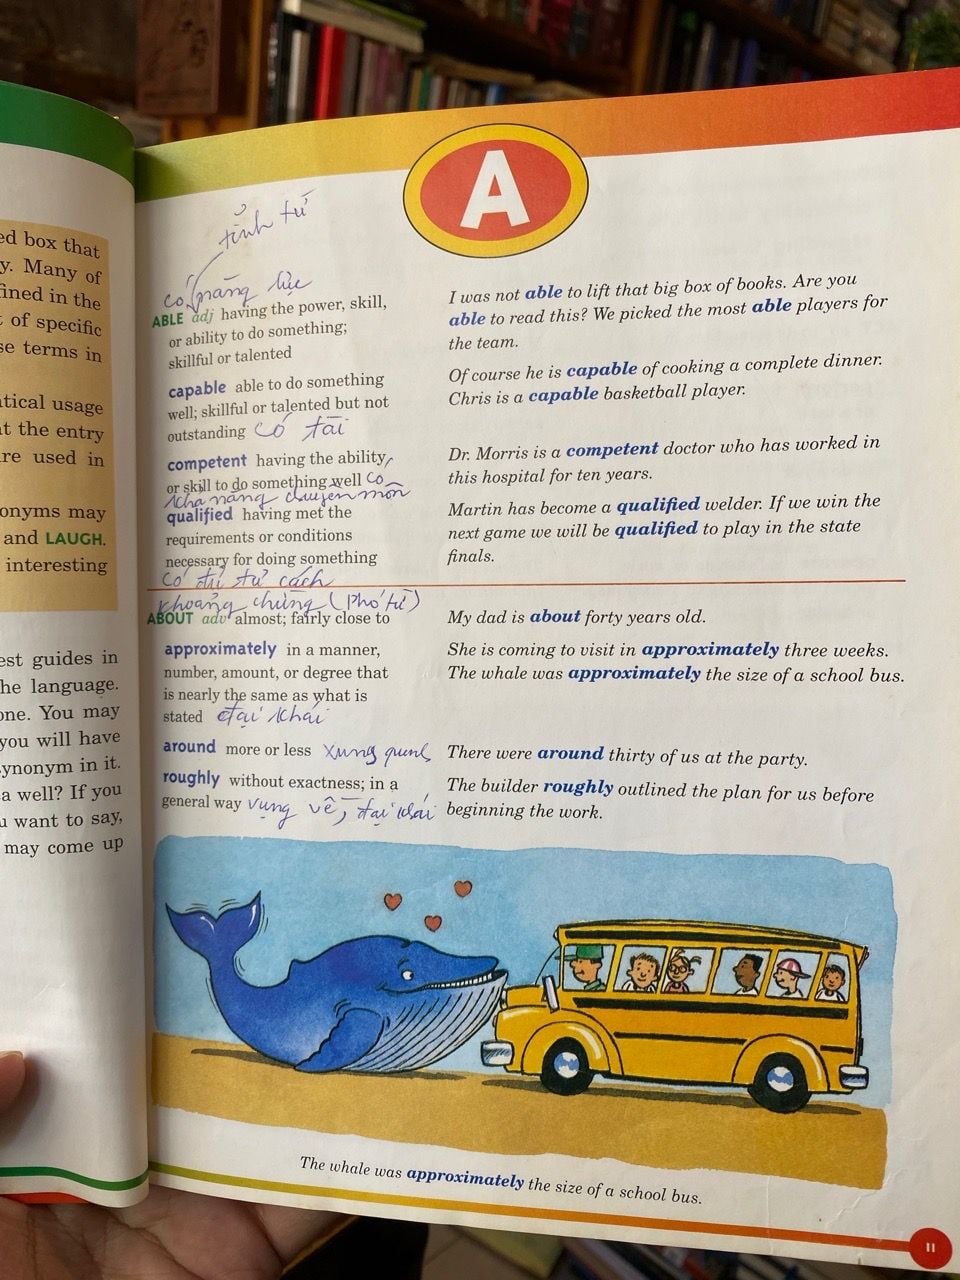 ed box that
y. Many of
ined in the
t of specific
se terms in
tical usage
t the entry
re used in
onyms may
and LAUGH.
interesting
est guides in
he language.
one. You may
you will have
ynonym in it.
a well? If you
u want to say,
may come up
A
tính từ
có năng lực
ABLE adj having the power, skill,
or ability to do something;
skillful or talented
I was not able to lift that big box of books. Are you
able to read this? We picked the most able players for
the team.
capable able to do something
well; skillful or talented but not
outstanding có tài
Of course he is capable of cooking a complete dinner.
Chris is a capable basketball player.
competent having the ability
or skill to do something well có
khả năng chuyên môn
Dr. Morris is a competent doctor who has worked in
this hospital for ten years.
qualified having met the
requirements or conditions
necessary for doing something
có đủ tư cách
Martin has become a qualified welder. If we win the
next game we will be qualified to play in the state
finals.
khoảng chừng (phó từ)
ABOUT adv almost; fairly close to
My dad is about forty years old.
approximately in a manner,
number, amount, or degree that
is nearly the same as what is
stated đại khái
She is coming to visit in approximately three weeks.
The whale was approximately the size of a school bus.
around more or less xung quanh
There were around thirty of us at the party.
roughly without exactness; in a
general way vụng về, đại khái
The builder roughly outlined the plan for us before
beginning the work.
The whale was approximately the size of a school bus.
11